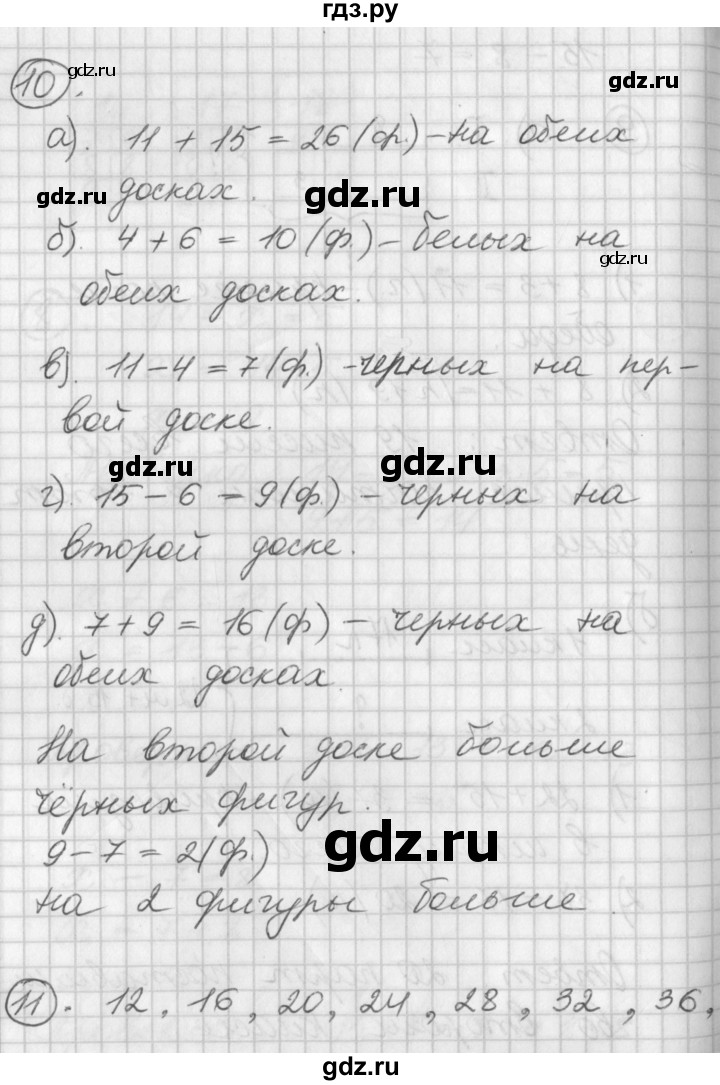 гдз.ру
10.
gdz.ru
gdz.ru
а). 11 + 15 = 26 (ф.) – на обеих
gdz.ru
досках.
gdz.ru
б). 4 + 6 = 10 (ф.) – белых на
gdz.ru
обеих досках.
в). 11 – 4 = 7 (ф.) - черных на пер-
вой доске.
gdz.ru
gdz.ru
г). 15 – 6 = 9 (ф.) – черных на
второй доске.
д). 7 + 9 = 16 (ф) – черных на
обеих досках.
На второй доске больше
чёрных фигур.
9 – 7 = 2 (ф.)
gdz.ru
на 2 фигуры больше.
11. 12, 16, 20, 24, 28, 32, 36,
gdz.ru